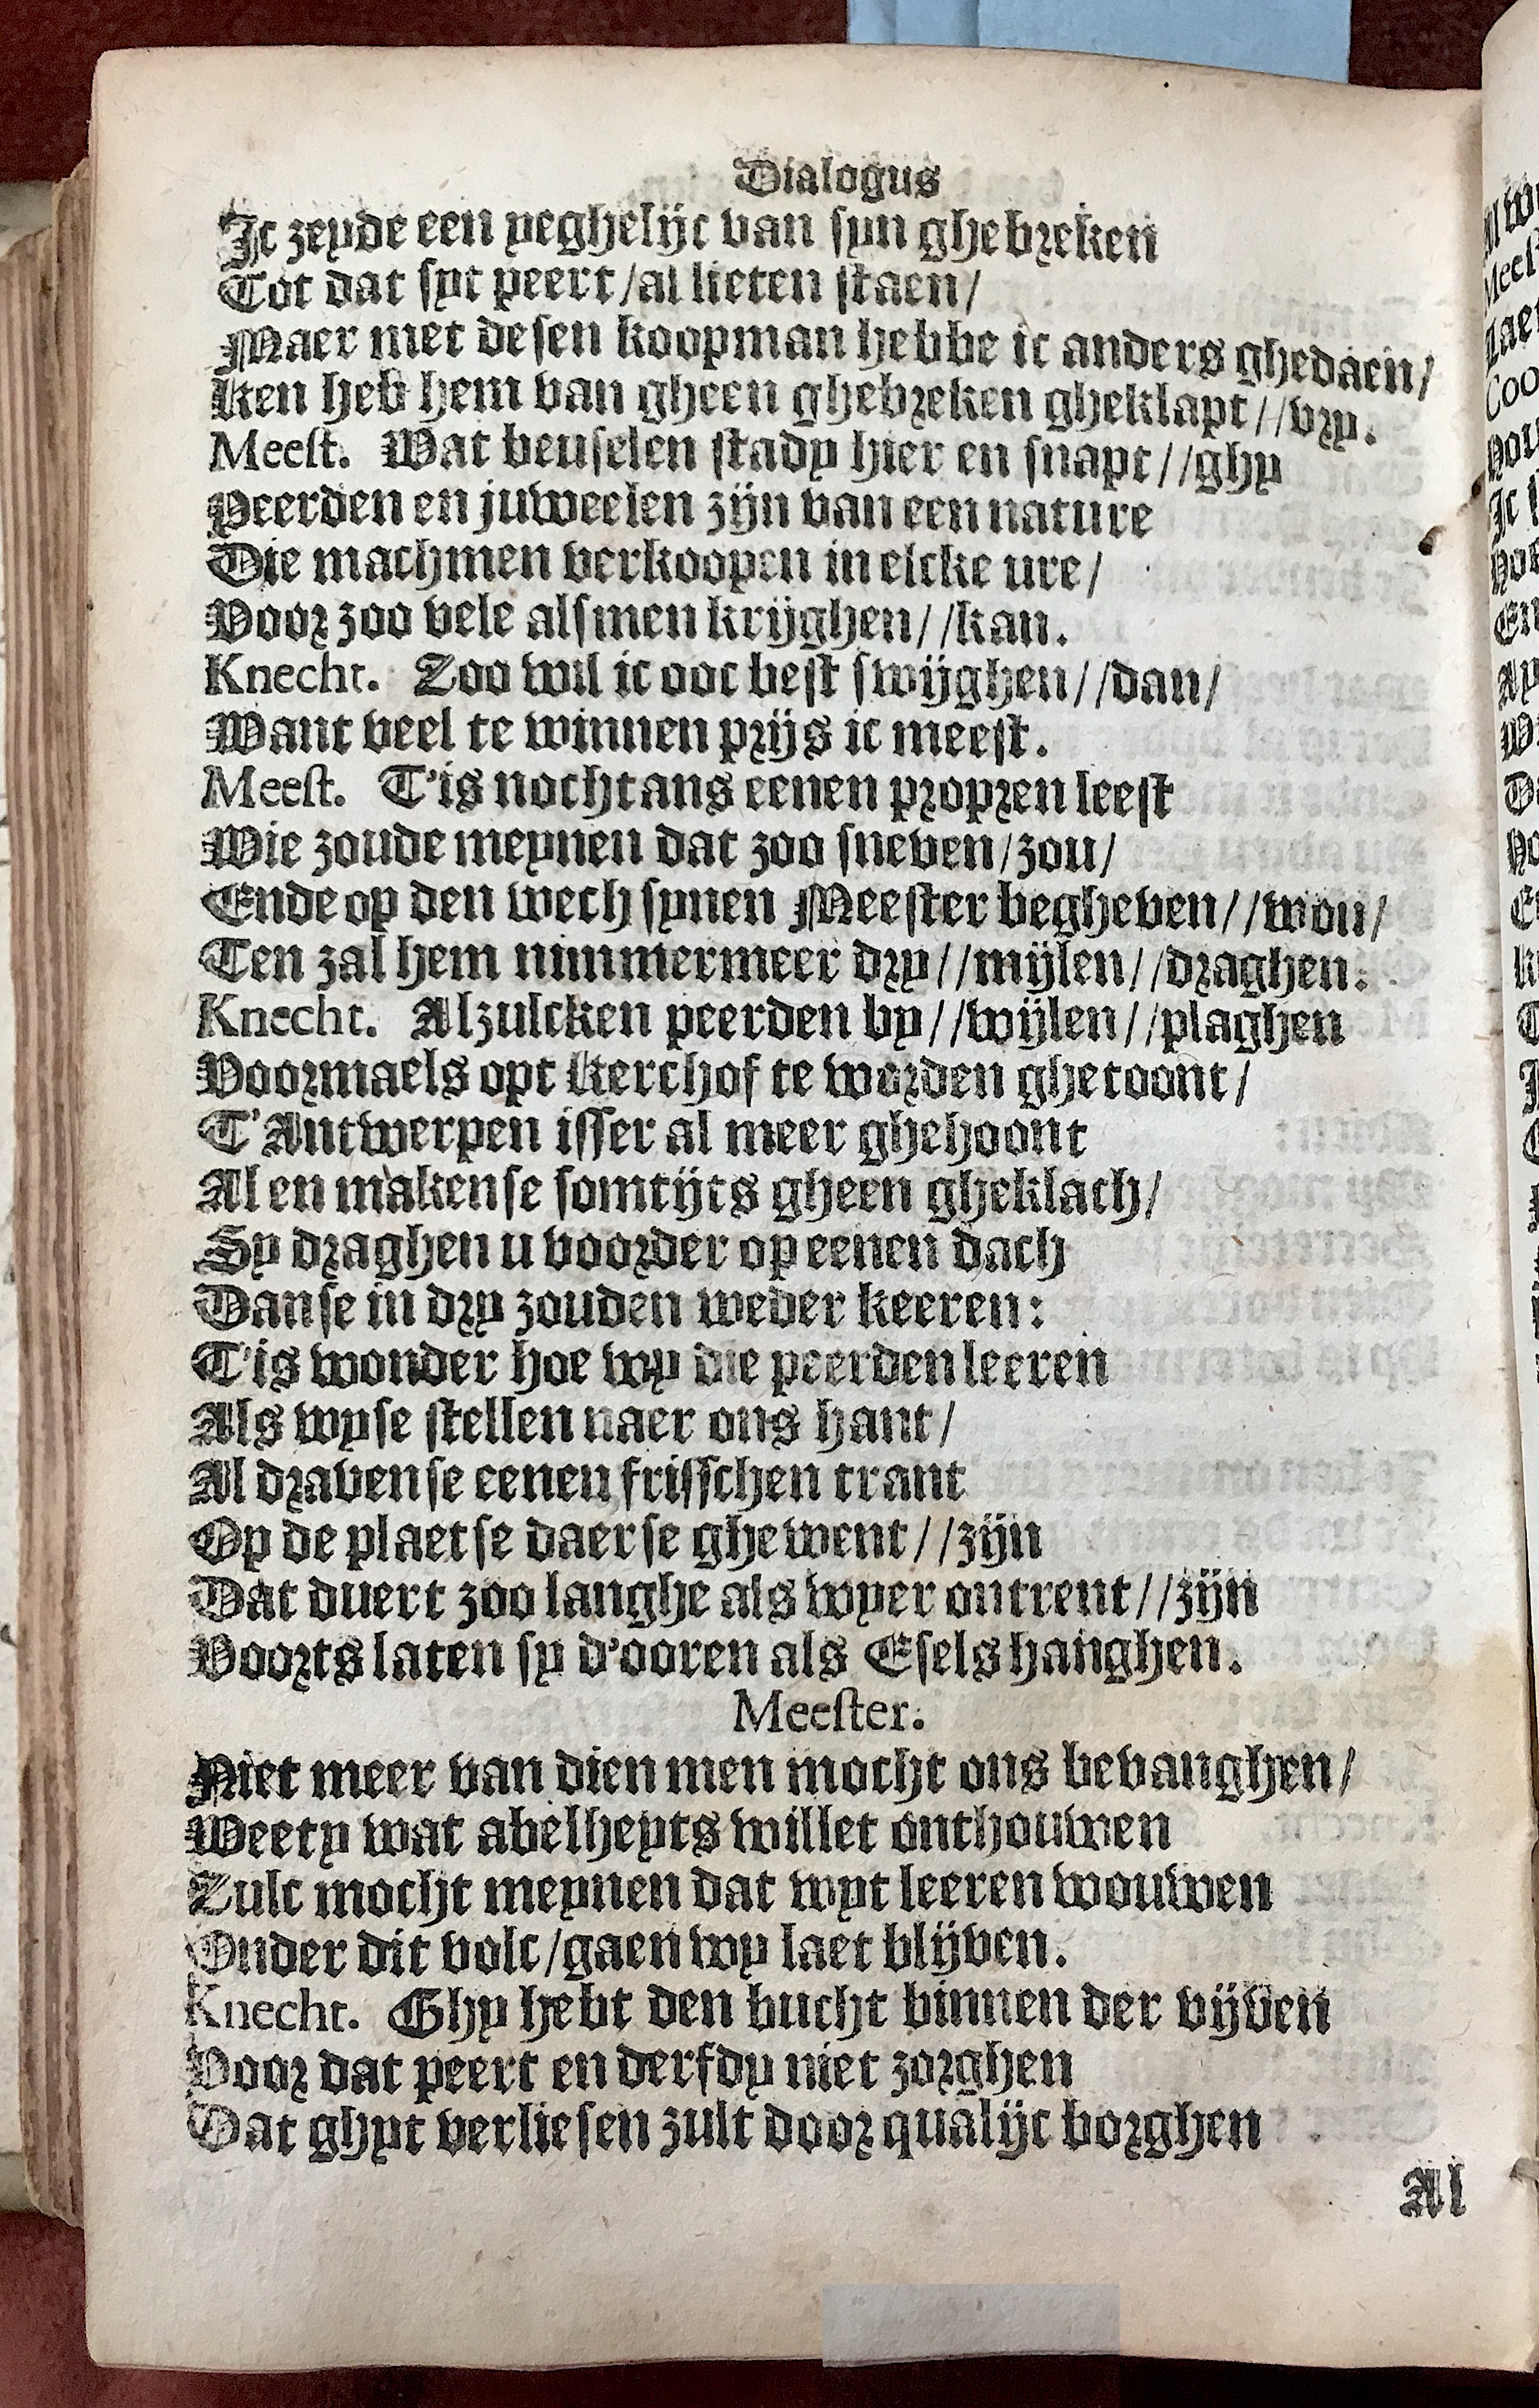 Dialogus
Ic zeyde een yeghelijc van syn ghebreken
Tot dat syt peert/al lieten staen/
Maer met desen koopman hebbe ic anders ghedaen/
Ken heb hem van gheen ghebreken gheklapt//vry.
Meest. Wat beuselen stady hier en snapt//ghy
Peerden en juweelen zijn van een nature
Die machmen verkoopen in elcke ure/
Voor zoo vele alsmen krijghen//kan.
Knecht. Zoo wil ic ooc best swijghen//dan/
Want veel te winnen prijs ic meest.
Meest. T'is nochtans eenen propren leest
Wie zoude meynen dat zoo sneven/zou/
Ende op den wech synen Meester begheven//wou/
Ten zal hem nimmermeer dry//mijlen//draghen.
Knecht. Alzulcken peerden by//wijlen//plaghen
Voormaels opt kerchof te worden ghetoont/
T'Antwerpen isser al meer ghehoont
Al en makense somtijts gheen gheklach/
Sy draghen u voorder op eenen dach
Danse in dry zouden weder keeren:
T'is wonder hoe wy die peerden leeren
Als wyse stellen naer ons hant/
Al dravense eenen frisschen trant
Op de plaetse daerse ghewent//zijn
Dat duert zoo langhe als wyer ontrent//zijn
Voorts laten sy d'ooren als Esels hanghen.
Meester.
Niet meer van dien men mocht ons bevanghen/
Weety wat abelheyts willet onthouwen
Zulc mocht meynen dat wyt leeren wouwen
Onder dit volc/gaen wy laet blijven.
Knecht. Ghy hebt den bucht binnen der vijven
Voor dat peert en derfdy niet zorghen
Dat ghyt verliesen zult door qualijc borghen
Al